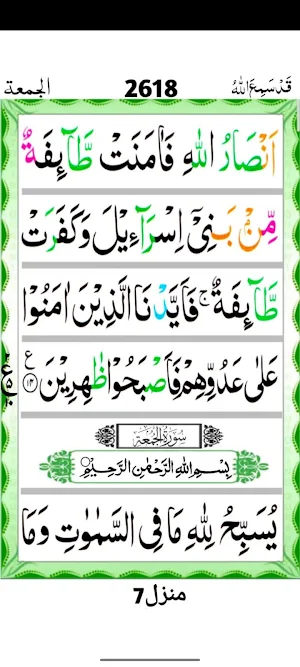 الجمعة 2618 قَدْ سَمِعَ اللهُ
اَنْصَارُ اللّٰهِ فَاٰمَنَتْ طَّآئِفَةٌ
مِّنْۢ بَنِیْۤ اِسْرَآءِیْلَ وَكَفَرَتْ
طَّآئِفَةٌ ۚ فَاَیَّدْنَا الَّذِیْنَ اٰمَنُوْا
عَلٰی عَدُوِّهِمْ فَاَصْبَحُوْا ظٰهِرِیْنَ ۝۱۴
سُوْرَةُ الْجُمُعَةِ
بِسْمِ اللهِ الرَّحْمٰنِ الرَّحِیْمِ
یُسَبِّحُ لِلّٰهِ مَا فِی السَّمٰوٰتِ وَمَا
منزل7